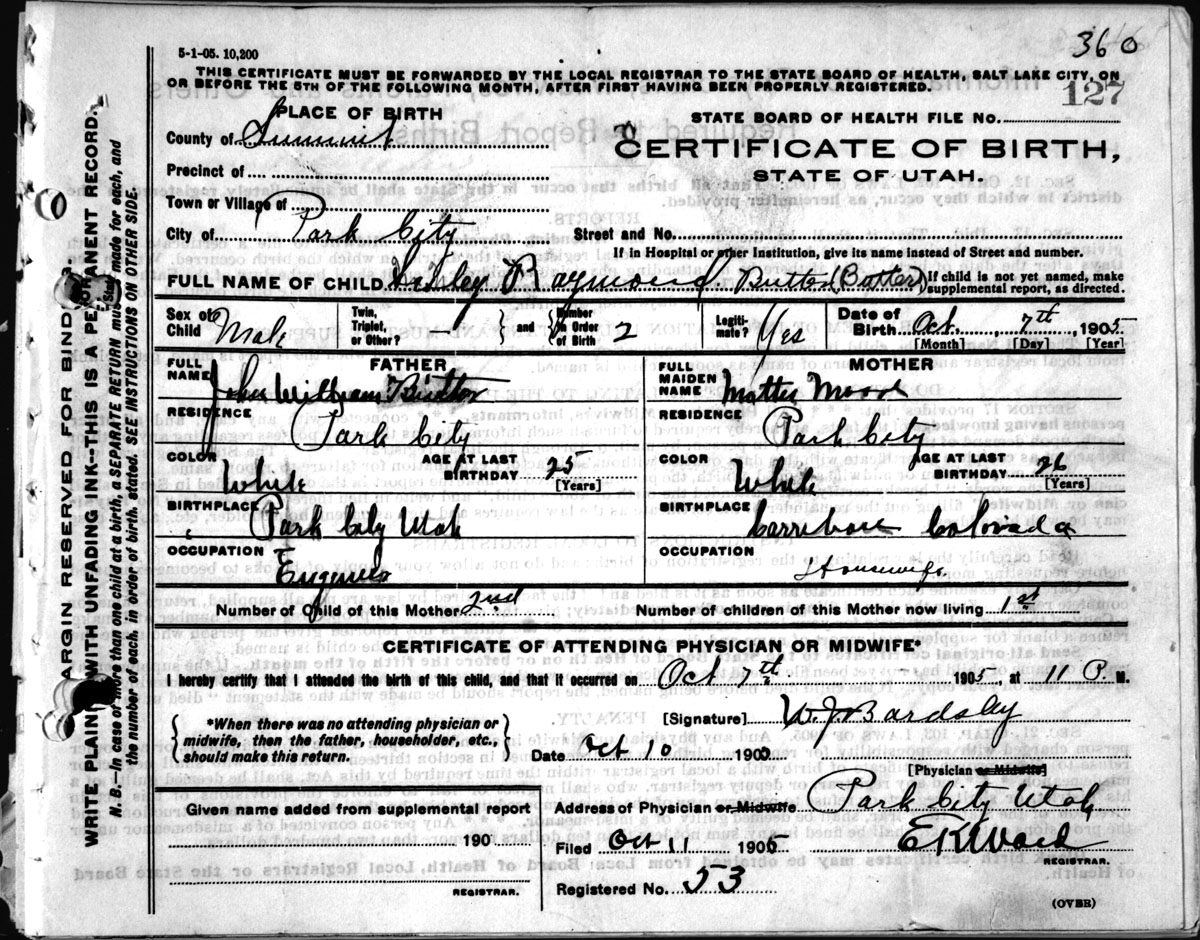 360
5-1-05. 10,200
THIS CERTIFICATE MUST BE FORWARDED BY THE LOCAL REGISTRAR TO THE STATE BOARD OF HEALTH, SALT LAKE CITY, ON
OR BEFORE THE 5TH OF THE FOLLOWING MONTH, AFTER FIRST HAVING BEEN PROPERLY REGISTERED.
127
PLACE OF BIRTH
STATE BOARD OF HEALTH FILE No.
County of Summit
CERTIFICATE OF BIRTH,
Precinct of
STATE OF UTAH.
Town or Village of
City of Park City Street and No.
If in Hospital or other Institution, give its name instead of Street and number.
FULL NAME OF CHILD Raymond Button (Batter) If child is not yet named, make
supplemental report, as directed.
Sex of Child Male
Twin, Triplet, or Other? } and { Number in Order of Birth 2
Legitimate? Yes
Date of Birth Oct. 7th, 1905
[Month] [Day] [Year]
FATHER
FULL NAME John William
RESIDENCE Park City
COLOR White AGE AT LAST BIRTHDAY 25
[Years]
BIRTHPLACE Park City Utah
OCCUPATION
MOTHER
FULL MAIDEN NAME
RESIDENCE Park City
COLOR White AGE AT LAST BIRTHDAY 26
[Years]
BIRTHPLACE Colorado
OCCUPATION Housewife
Number of Child of this Mother 2nd Number of children of this Mother now living 1st
CERTIFICATE OF ATTENDING PHYSICIAN OR MIDWIFE*
I hereby certify that I attended the birth of this child, and that it occurred on Oct 7th. 1905, at 11 P. M.
{ *When there was no attending physician or
midwife, then the father, householder, etc.,
should make this return. }
[Signature] W. J. Bardsley
Date Oct 10 190
[Physician or Midwife]
Given name added from supplemental report
190
REGISTRAR.
Address of Physician or Midwife Park City Utah
Filed Oct 11 1905
REGISTRAR.
Registered No. 53
(OVER)
MARGIN RESERVED FOR BINDING
WRITE PLAINLY WITH UNFADING INK--THIS IS A PERMANENT RECORD.
N. B.--In case of more than one child at a birth, a SEPARATE RETURN must be made for each, and
the number of each, in order of birth, stated. SEE INSTRUCTIONS ON OTHER SIDE.